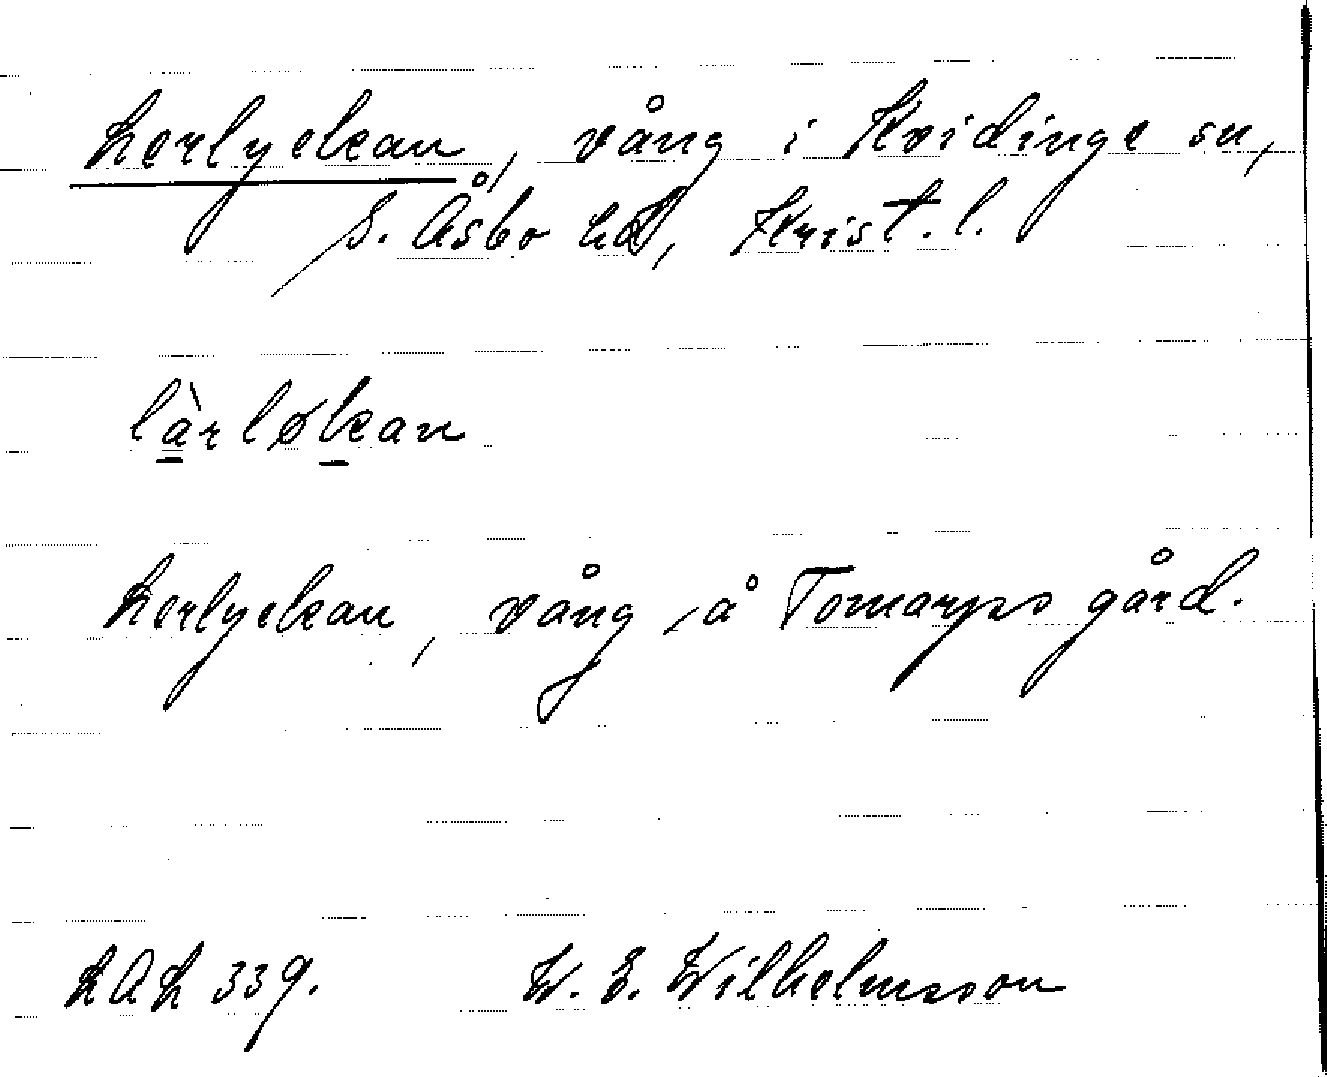 Lerlyckan, vång i Kvidinge sn,
S. Åsbo hd, Krist. l.
làrløkan
Lerlyckan, vång å Tomarps gård.
LAL 339.
W. E. Wilhelmsson